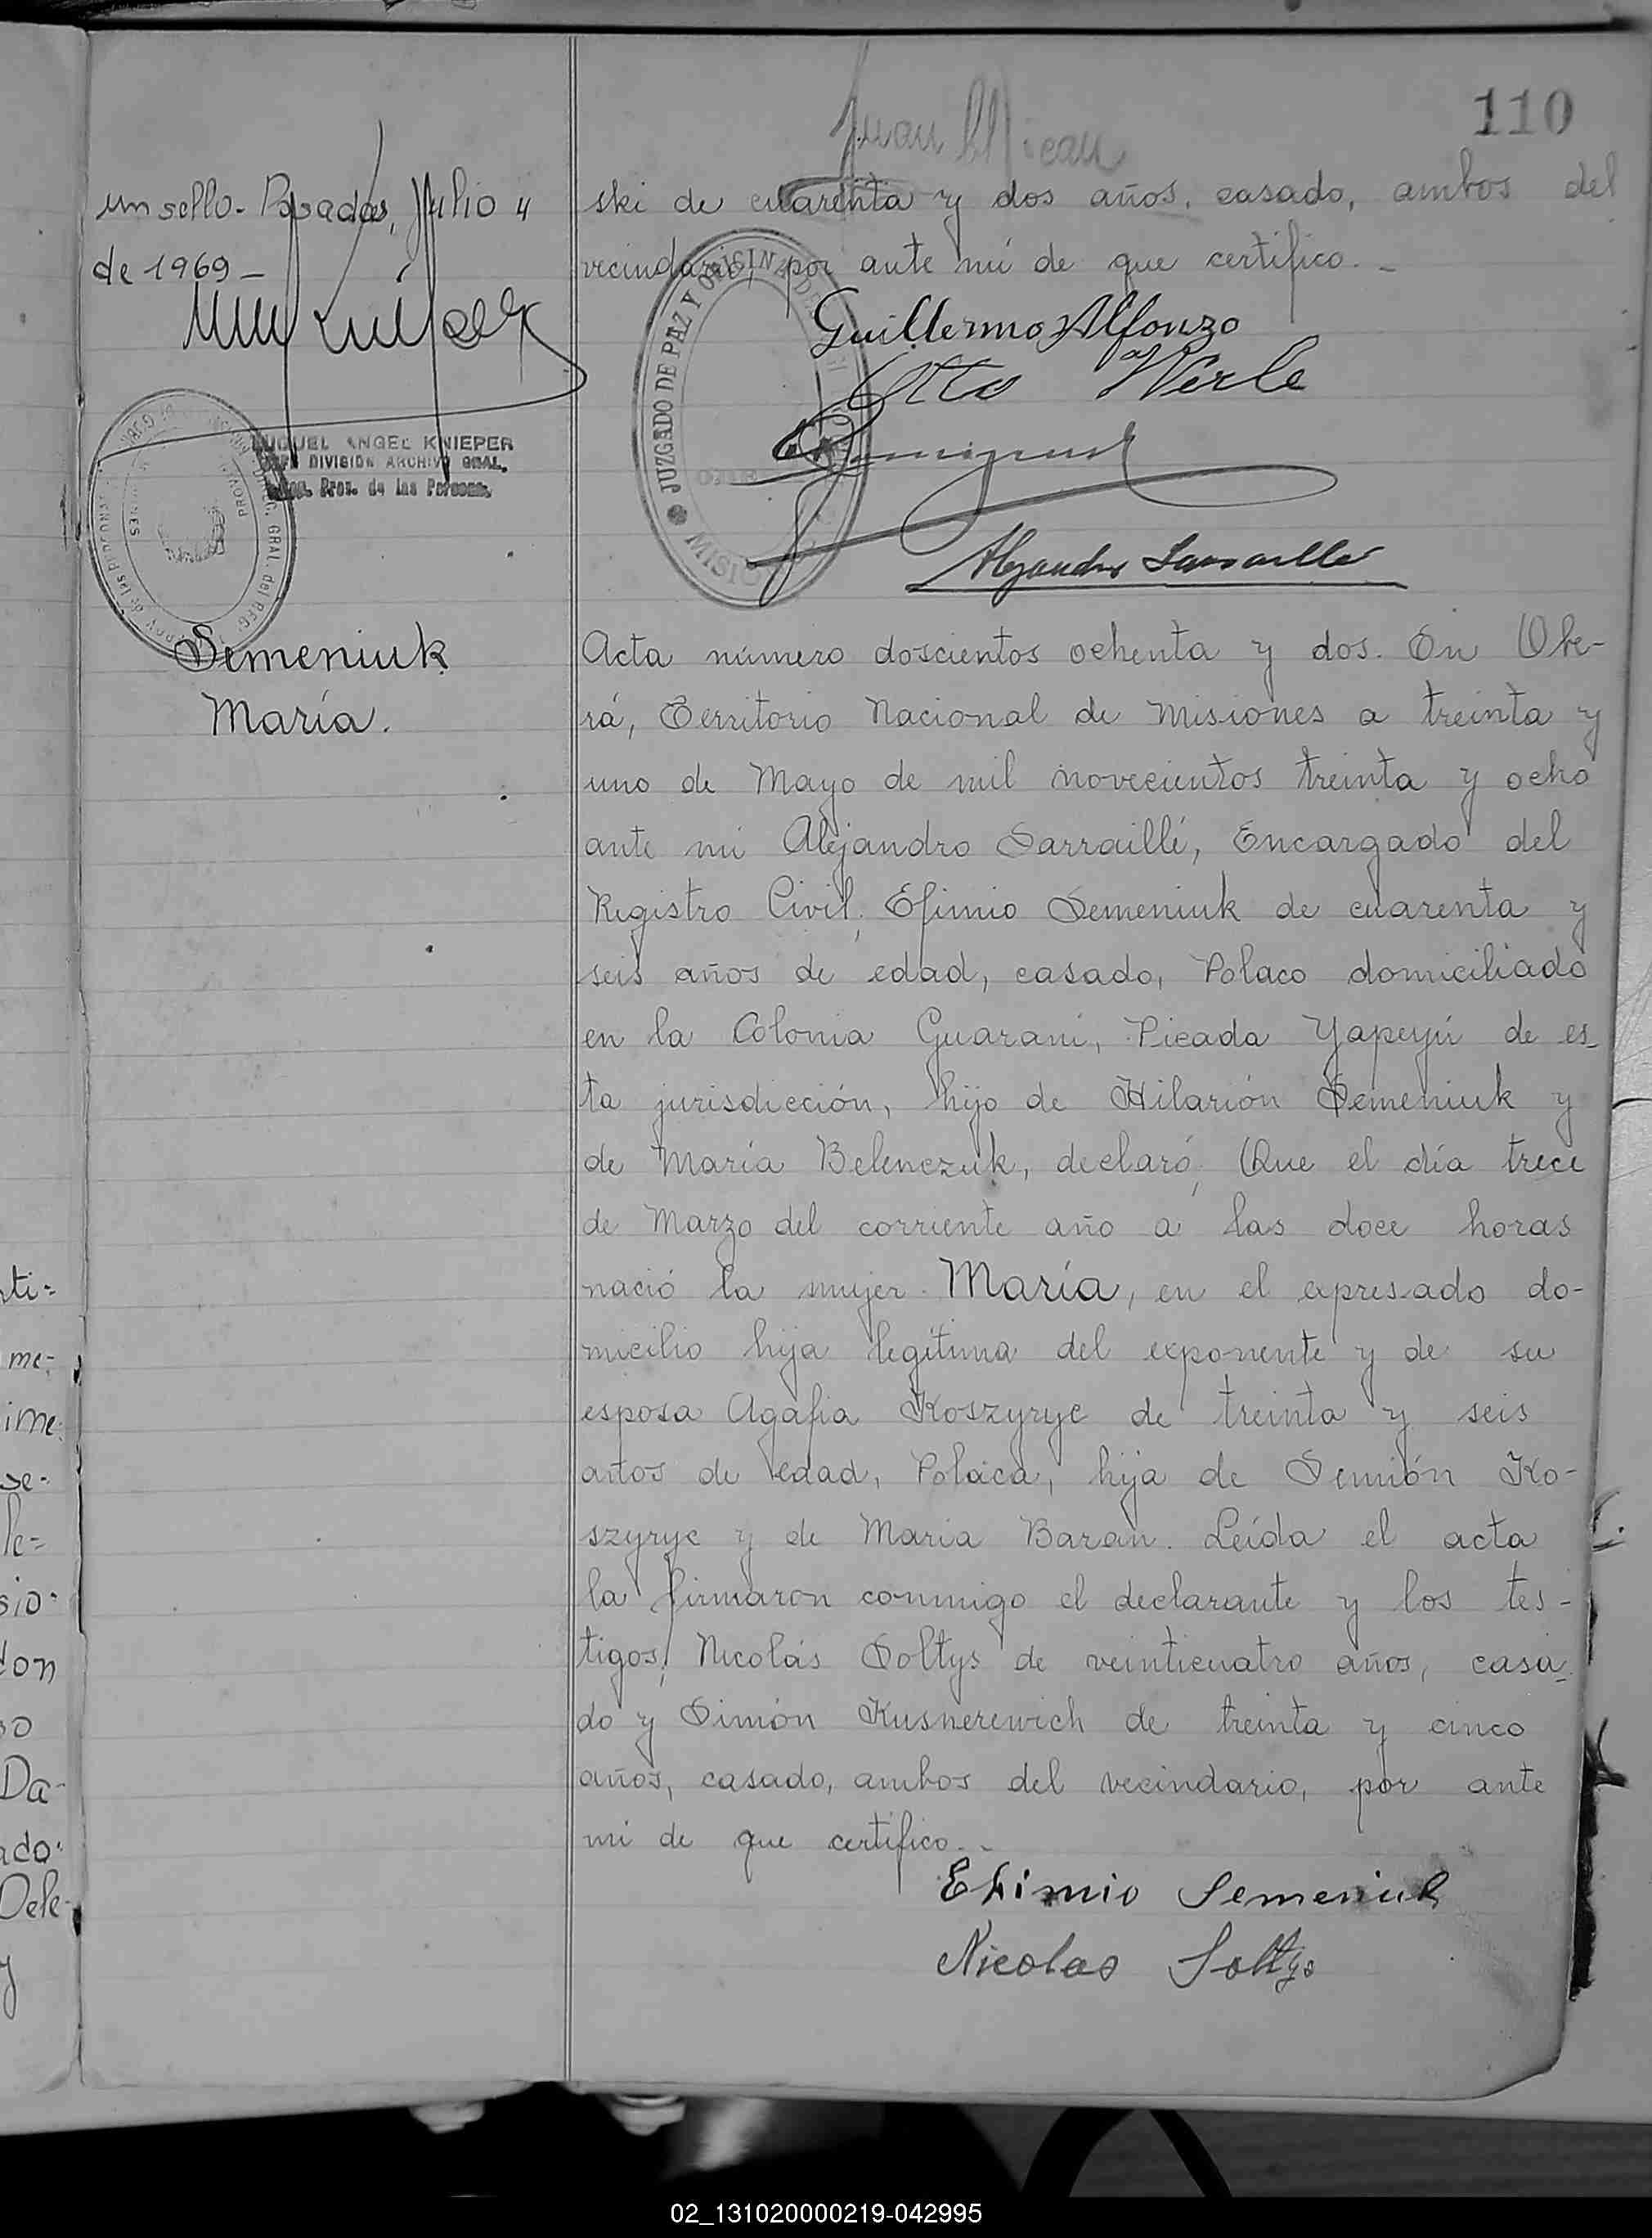 110
un sello. Posadas, Julio 4
de 1969 -
MIGUEL ANGEL KNIEPER
JEFE DIVISION ARCHIVO GRAL.
Prov. de las Personas
ski de cuarenta y dos años, casado, ambos del
vecindario, por ante mí de que certifico. -
JUZGADO DE PAZ Y
MISIONES
Guillermo Alfonzo
Otto Werle
Alejandro Sarraillé
Semeniuk
María.
Acta número doscientos ochenta y dos. En Obe-
rá, Territorio Nacional de Misiones a treinta y
uno de Mayo de mil novecientos treinta y ocho
ante mi Alejandro Sarraillé, Encargado del
Registro Civil, Efimio Semeniuk de cuarenta y
seis años de edad, casado, Polaco domiciliado
en la Colonia Guaraní, Picada Yapeyú de es-
ta jurisdicción, hijo de Hilarión Semeniuk y
de María Belenczuk, declaró; Que el día trece
de Marzo del corriente año a las doce horas
nació la mujer María, en el expresado do-
micilio hija legítima del exponente y de su
esposa Agafia Koszyryc de treinta y seis
años de edad, Polaca, hija de Semión Ko-
szyryc y de María Baran. Leída el acta
la firmaron conmigo el declarante y los tes-
tigos, Nicolás Soltys de veinticuatro años, casa-
do y Simón Kusnerewich de treinta y cinco
años, casado, ambos del vecindario, por ante
mi de que certifico. -
Efimio Semeniuk
Nicolas Soltys
02_131020000219-042995